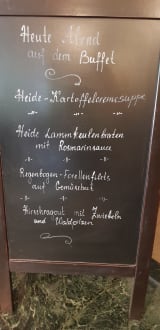 Heute Abend
auf dem Buffet
Heide-Kartoffelcremesuppe
Heide Lammkeulenbraten
mit Rosmarinsauce
Regenbogen-Forellenfilets
auf Gemüsebut
Hirschragout mit Zwiebeln
und Waldpilzen